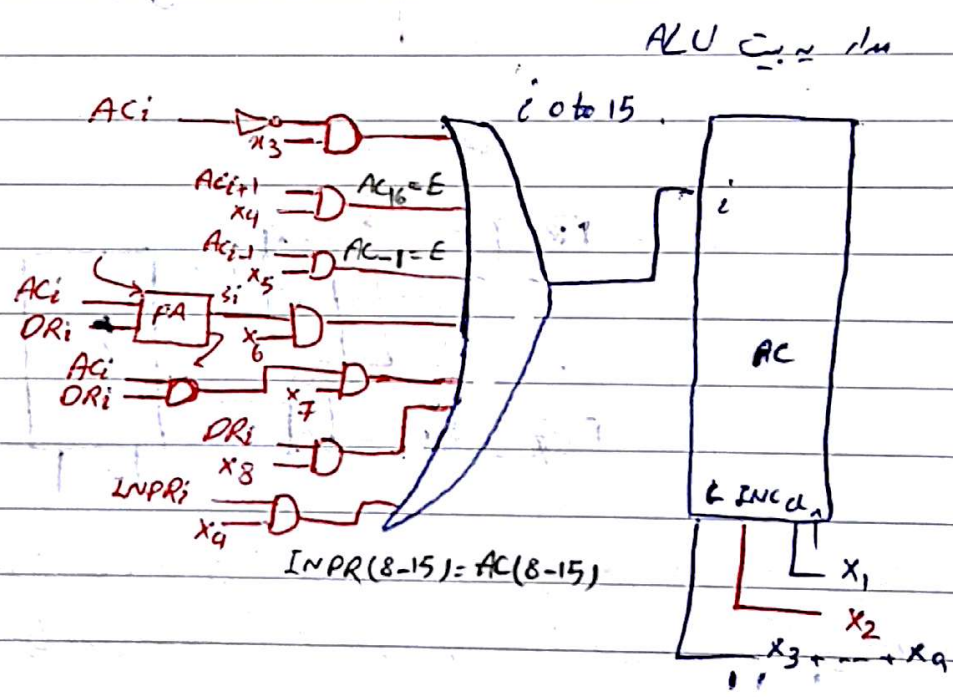 مدار یک بیت ALU
i 0 to 15
ACi
x3
ACi+1
x4
AC16=E
ACi-1
x5
AC-1=E
ACi
DRi
FA
Si
x6
ACi
DRi
x7
DRi
x8
INPRi
x9
INPR(8-15)=AC(8-15)
i
AC
L INC
x1
x2
x3 + --- + x9